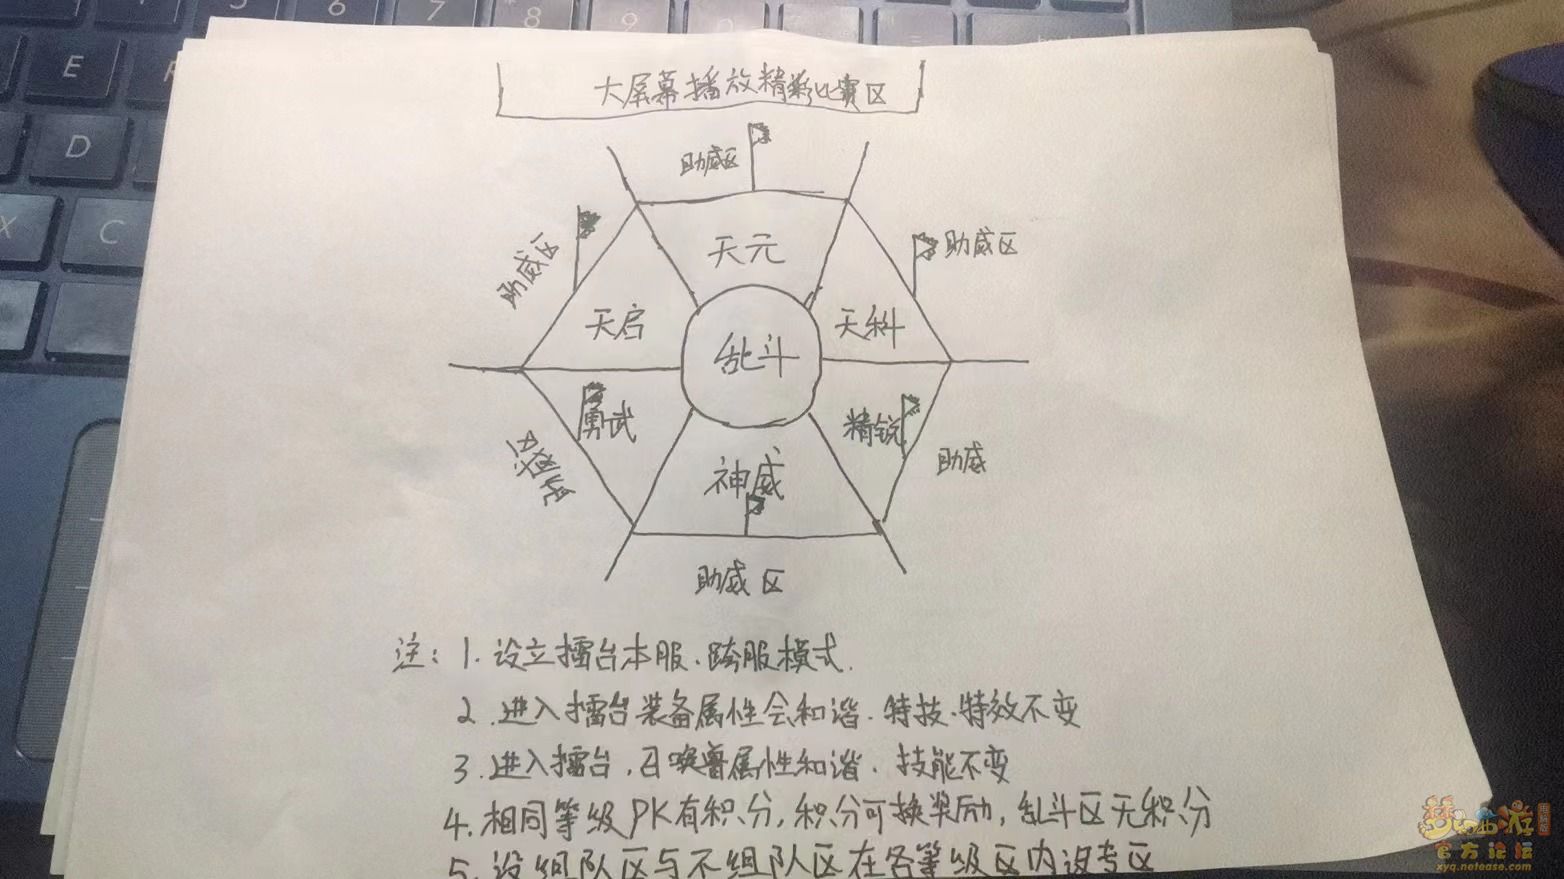 E
D
X
C
5
6
7
8
9
大屏幕播放精彩比赛区
助威区
助威区
助威区
天元
天启
天科
乱斗
勇武
精锐
神威
助威区
助威
助威区
注：1.设立擂台本服、跨服模式.
2.进入擂台装备属性会和谐.特技、特效不变
3.进入擂台,召唤兽属性和谐.技能不变
4.相同等级PK有积分,积分可换奖励,乱斗区无积分
5.设组队区与不组队区在各等级区内设专区
梦幻西游
电脑版
官方论坛
xyq.netease.com